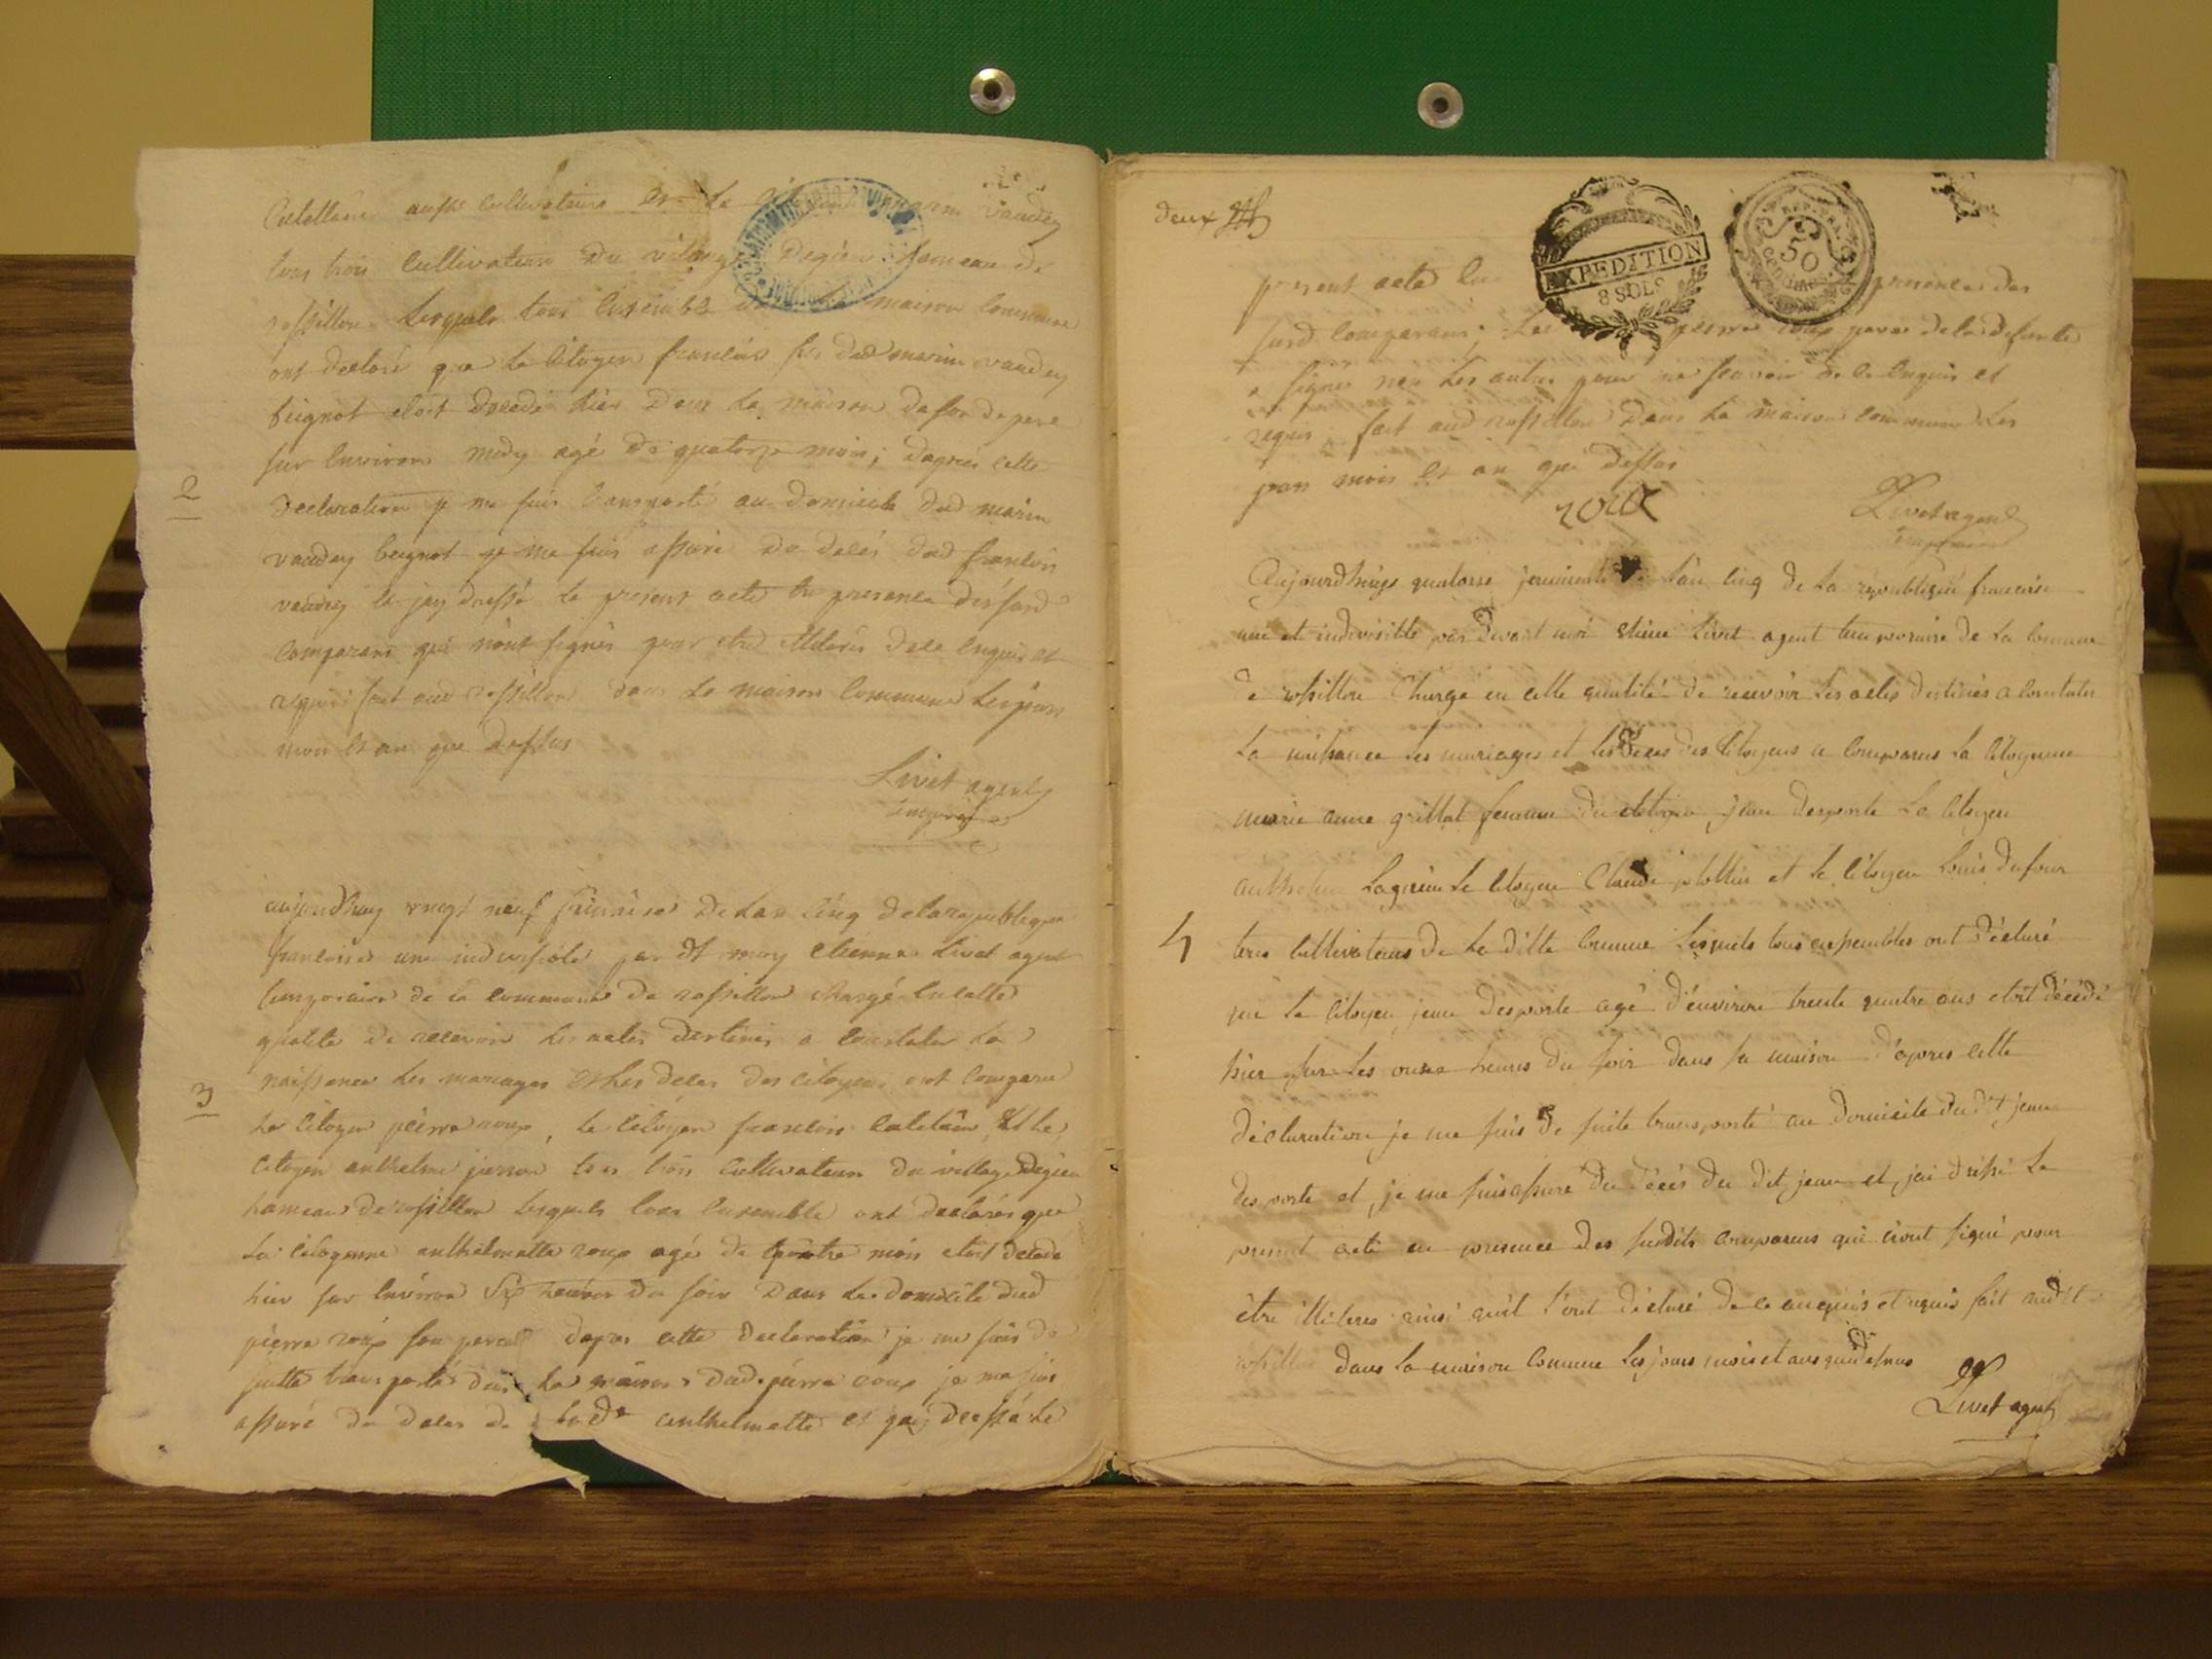 Catellain aussi cultivateurs et le marin vaudey
tous trois cultivateurs du vilage Degieu hameau de
rossillon lesquels tous ensemble dans la maison commune
ont declaré que le citoyen francois fils dud marin vaudey
beignot etoit decedé hier dans la maison de son de pere
sur lenviron midy agé de quatorze mois ; dapres cette
2
declaration je me suis transporté au domicile dud marin
vaudey beignot je me suis assuré du deces dud francois
vaudey et jay dressé le present acte en presence des susd
comparans qui nont signés pour etre illiterés de ce enquis et
requis fait aud rossillon dans la maison commune les jours
mois et an que dessus
Livet agent
temporaire
aujourdhuy vingt neuf frimaire de lan cinq de la republique
francoise une indivisible par dt moy etienne Livet agent
temporaire de la commune de rossillon chargé en cette
qualité de recevoir les actes destinés a constater la
3
naissance les mariages et les deces des citoyens ont comparu
le citoyen pierre roux, le citoyen francois catelain et le
citoyen anthelme tous trois cultivateurs du village degieu
hameau de rossillon lesquels tous ensemble ont declarés que
la citoyenne anthelmette roux agé de quatre mois etoit decedé
hier sur lenviron six heures du soir dans le domicile dud
pierre roux son pere dapres cette declaration je me suis de
suitte transporté dans la maison dud pierre roux je me suis
assuré du deces de lade anthelmette et jay dressé le
deux
present acte en presence des
susd comparans ; pierre roux pere de la defunte
a signés non les autres pour ne scavoir de ce enquis et
requis fait aud rossillon dans la maison commune les
jour mois et an que dessus
roux
Livet agent
temporaire
Aujourdhuys quatorse l'an cinq de la république francaise
une et indivisible par devant moi etiene Livet agent temporaire de la comune
de rossillon Chargé en cette qualité de recevoir les actes destinés a constater
la naissance les mariages et les deces des citoyens a comparus la citoyenne
marie anne grillat femme du citoyen jean desporte le citoyen
anthelme le citoyen Claude et le citoyen Louis dufour
4
tous cultivateurs de la ditte comune lesquels tous ensembles ont déclaré
que le citoyen jean desporte agé d'environ trente quatre ans etoit décédé
hier sur les onse heures du soir dans sa maison d'apres cette
déclaration je me suis de suite transporté au domicile du dit jean
desporte et je me suis assuré du décés du dit jean et jai dréssé le
present acte en presence des susdits comparans qui n'ont signé pour
être illiteres ainsi quil l'ont déclaré de ce enquis et requis fait au dit
rossillon dans la maison comune les jours mois et ans que dessus
Livet agent
EXPEDITION
8 SOLS
REP. FRA.
50
CENTIMES